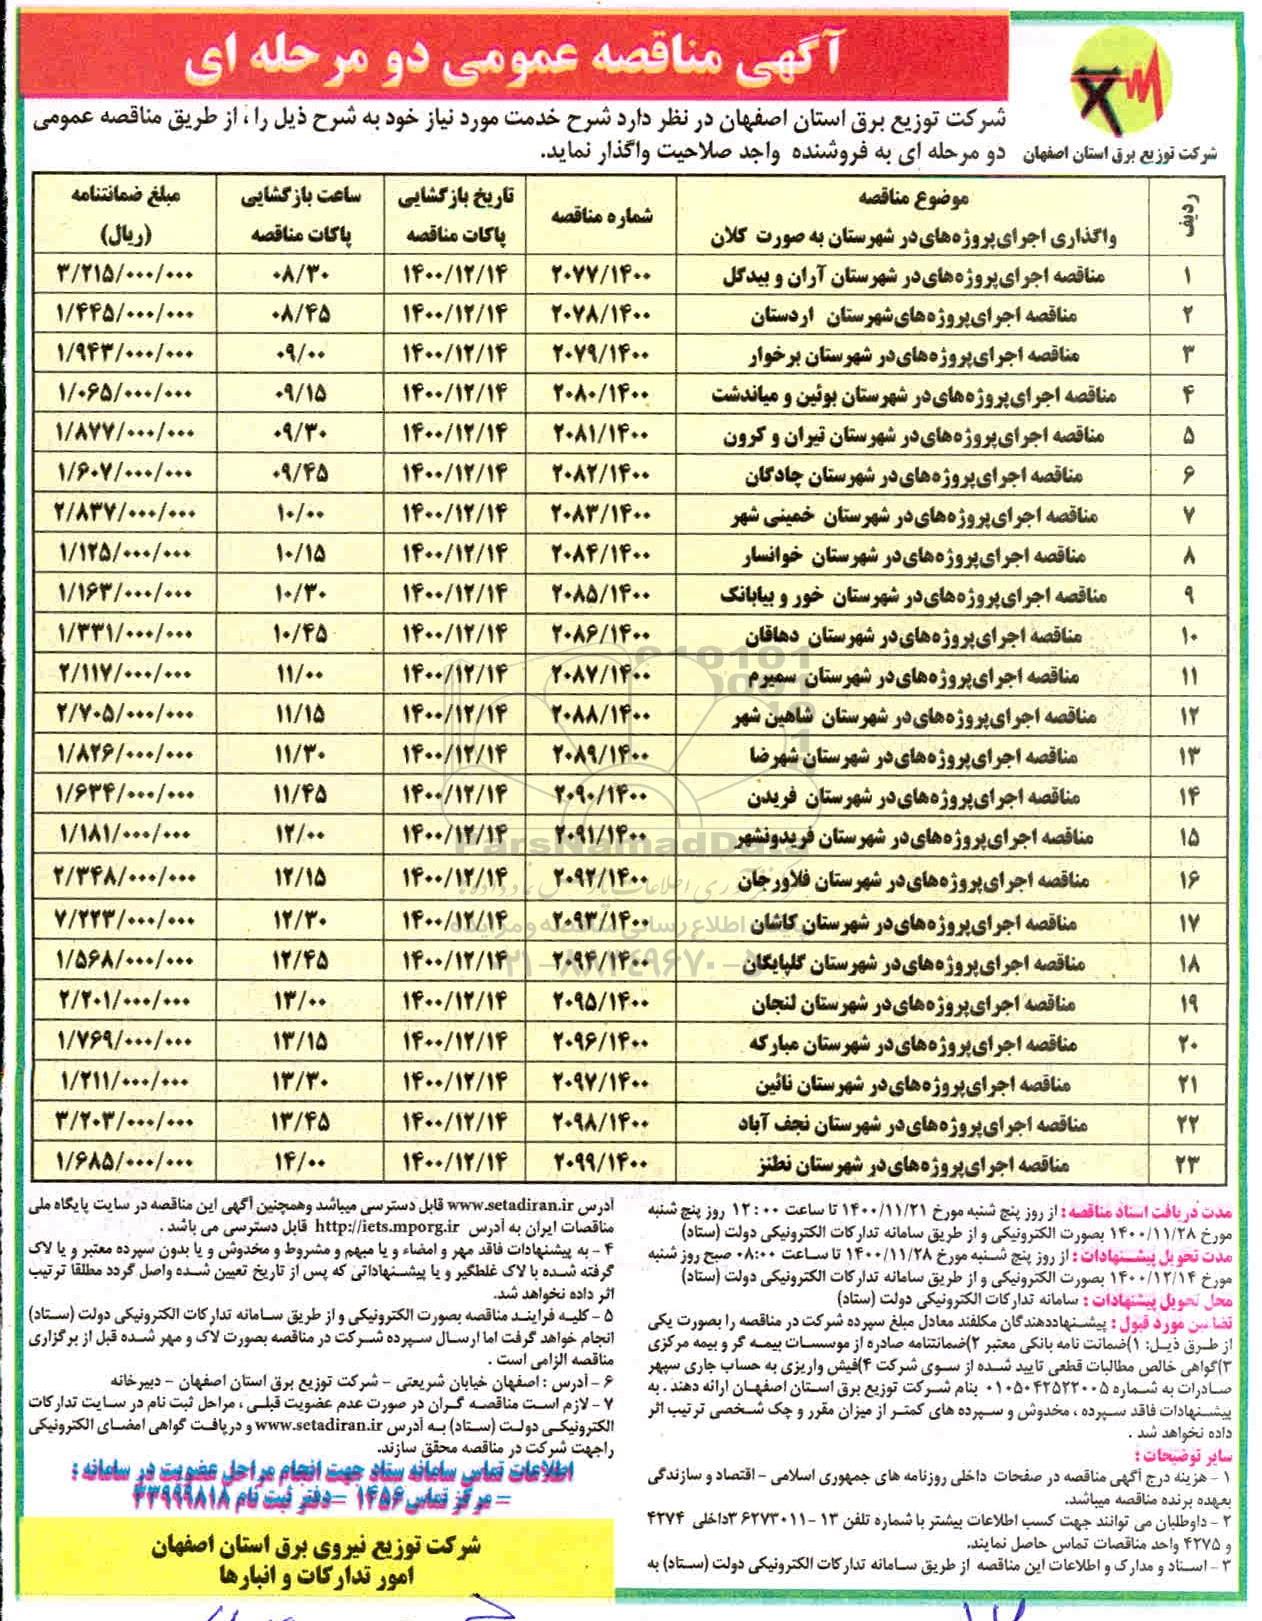 آگهی مناقصه عمومی دو مرحله ای
شرکت توزیع برق استان اصفهان
شرکت توزیع برق استان اصفهان در نظر دارد شرح خدمت مورد نیاز خود به شرح ذیل را ، از طریق مناقصه عمومی
دو مرحله ای به فروشنده واجد صلاحیت واگذار نماید.
ردیف | موضوع مناقصه واگذاری اجرای پروژه های در شهرستان به صورت کلان | شماره مناقصه | تاریخ بازگشایی پاکات مناقصه | ساعت بازگشایی پاکات مناقصه | مبلغ ضمانتنامه (ریال)
۱ | مناقصه اجرای پروژه های در شهرستان آران و بیدگل | ۲۰۷۷/۱۴۰۰ | ۱۴۰۰/۱۲/۱۴ | ۰۸/۳۰ | ۳/۲۱۵/۰۰۰/۰۰۰
۲ | مناقصه اجرای پروژه های شهرستان اردستان | ۲۰۷۸/۱۴۰۰ | ۱۴۰۰/۱۲/۱۴ | ۰۸/۴۵ | ۱/۴۴۵/۰۰۰/۰۰۰
۳ | مناقصه اجرای پروژه های در شهرستان برخوار | ۲۰۷۹/۱۴۰۰ | ۱۴۰۰/۱۲/۱۴ | ۰۹/۰۰ | ۱/۹۴۳/۰۰۰/۰۰۰
۴ | مناقصه اجرای پروژه های در شهرستان بوئین و میاندشت | ۲۰۸۰/۱۴۰۰ | ۱۴۰۰/۱۲/۱۴ | ۰۹/۱۵ | ۱/۰۶۵/۰۰۰/۰۰۰
۵ | مناقصه اجرای پروژه های در شهرستان تیران و کرون | ۲۰۸۱/۱۴۰۰ | ۱۴۰۰/۱۲/۱۴ | ۰۹/۳۰ | ۱/۸۷۷/۰۰۰/۰۰۰
۶ | مناقصه اجرای پروژه های در شهرستان چادگان | ۲۰۸۲/۱۴۰۰ | ۱۴۰۰/۱۲/۱۴ | ۰۹/۴۵ | ۱/۶۰۷/۰۰۰/۰۰۰
۷ | مناقصه اجرای پروژه های در شهرستان خمینی شهر | ۲۰۸۳/۱۴۰۰ | ۱۴۰۰/۱۲/۱۴ | ۱۰/۰۰ | ۲/۸۳۷/۰۰۰/۰۰۰
۸ | مناقصه اجرای پروژه های در شهرستان خوانسار | ۲۰۸۴/۱۴۰۰ | ۱۴۰۰/۱۲/۱۴ | ۱۰/۱۵ | ۱/۱۲۵/۰۰۰/۰۰۰
۹ | مناقصه اجرای پروژه های در شهرستان خور و بیابانک | ۲۰۸۵/۱۴۰۰ | ۱۴۰۰/۱۲/۱۴ | ۱۰/۳۰ | ۱/۱۶۳/۰۰۰/۰۰۰
۱۰ | مناقصه اجرای پروژه های در شهرستان دهاقان | ۲۰۸۶/۱۴۰۰ | ۱۴۰۰/۱۲/۱۴ | ۱۰/۴۵ | ۱/۳۳۱/۰۰۰/۰۰۰
۱۱ | مناقصه اجرای پروژه های در شهرستان سمیرم | ۲۰۸۷/۱۴۰۰ | ۱۴۰۰/۱۲/۱۴ | ۱۱/۰۰ | ۲/۱۱۷/۰۰۰/۰۰۰
۱۲ | مناقصه اجرای پروژه های در شهرستان شاهین شهر | ۲۰۸۸/۱۴۰۰ | ۱۴۰۰/۱۲/۱۴ | ۱۱/۱۵ | ۲/۷۰۵/۰۰۰/۰۰۰
۱۳ | مناقصه اجرای پروژه های در شهرستان شهرضا | ۲۰۸۹/۱۴۰۰ | ۱۴۰۰/۱۲/۱۴ | ۱۱/۳۰ | ۱/۸۲۶/۰۰۰/۰۰۰
۱۴ | مناقصه اجرای پروژه های در شهرستان فریدن | ۲۰۹۰/۱۴۰۰ | ۱۴۰۰/۱۲/۱۴ | ۱۱/۴۵ | ۱/۶۳۴/۰۰۰/۰۰۰
۱۵ | مناقصه اجرای پروژه های در شهرستان فریدونشهر | ۲۰۹۱/۱۴۰۰ | ۱۴۰۰/۱۲/۱۴ | ۱۲/۰۰ | ۱/۱۸۱/۰۰۰/۰۰۰
۱۶ | مناقصه اجرای پروژه های در شهرستان فلاورجان | ۲۰۹۲/۱۴۰۰ | ۱۴۰۰/۱۲/۱۴ | ۱۲/۱۵ | ۲/۳۴۸/۰۰۰/۰۰۰
۱۷ | مناقصه اجرای پروژه های در شهرستان کاشان | ۲۰۹۳/۱۴۰۰ | ۱۴۰۰/۱۲/۱۴ | ۱۲/۳۰ | ۷/۲۲۳/۰۰۰/۰۰۰
۱۸ | مناقصه اجرای پروژه های در شهرستان گلپایگان | ۲۰۹۴/۱۴۰۰ | ۱۴۰۰/۱۲/۱۴ | ۱۲/۴۵ | ۱/۵۶۸/۰۰۰/۰۰۰
۱۹ | مناقصه اجرای پروژه های در شهرستان لنجان | ۲۰۹۵/۱۴۰۰ | ۱۴۰۰/۱۲/۱۴ | ۱۳/۰۰ | ۲/۲۰۱/۰۰۰/۰۰۰
۲۰ | مناقصه اجرای پروژه های در شهرستان مبارکه | ۲۰۹۶/۱۴۰۰ | ۱۴۰۰/۱۲/۱۴ | ۱۳/۱۵ | ۱/۷۶۹/۰۰۰/۰۰۰
۲۱ | مناقصه اجرای پروژه های در شهرستان نائین | ۲۰۹۷/۱۴۰۰ | ۱۴۰۰/۱۲/۱۴ | ۱۳/۳۰ | ۱/۲۱۱/۰۰۰/۰۰۰
۲۲ | مناقصه اجرای پروژه های در شهرستان نجف آباد | ۲۰۹۸/۱۴۰۰ | ۱۴۰۰/۱۲/۱۴ | ۱۳/۴۵ | ۳/۲۰۳/۰۰۰/۰۰۰
۲۳ | مناقصه اجرای پروژه های در شهرستان نطنز | ۲۰۹۹/۱۴۰۰ | ۱۴۰۰/۱۲/۱۴ | ۱۴/۰۰ | ۱/۶۸۵/۰۰۰/۰۰۰
ParsNamadData
مدت دریافت اسناد مناقصه : از روز پنج شنبه مورخ ۱۴۰۰/۱۱/۲۱ تا ساعت ۱۲:۰۰ روز پنج شنبه
مورخ ۱۴۰۰/۱۱/۲۸ بصورت الکترونیکی و از طریق سامانه تدارکات الکترونیکی دولت (ستاد)
مدت تحویل پیشنهادات : از روز پنج شنبه مورخ ۱۴۰۰/۱۱/۲۸ تا ساعت ۰۸:۰۰ صبح روز شنبه
مورخ ۱۴۰۰/۱۲/۱۴ بصورت الکترونیکی و از طریق سامانه تدارکات الکترونیکی دولت (ستاد)
محل تحویل پیشنهادات : سامانه تدارکات الکترونیکی دولت (ستاد)
تضامین مورد قبول : پیشنهاددهندگان مکلفند معادل مبلغ سپرده شرکت در مناقصه را بصورت یکی
از طرق ذیل: ۱)ضمانت نامه بانکی معتبر ۲)ضمانتنامه صادره از موسسات بیمه گر و بیمه مرکزی
۳)گواهی خالص مطالبات قطعی تایید شده از سوی شرکت ۴)فیش واریزی به حساب جاری سپهر
صادرات به شماره ۰۱۰۵۰۴۲۵۲۲۰۰۵ بنام شرکت توزیع برق استان اصفهان ارائه دهند . به
پیشنهادات فاقد سپرده ، مخدوش و سپرده های کمتر از میزان مقرر و چک شخصی ترتیب اثر
داده نخواهد شد .
سایر توضیحات :
۱ - هزینه درج آگهی مناقصه در صفحات داخلی روزنامه های جمهوری اسلامی - اقتصاد و سازندگی
بعهده برنده مناقصه میباشد.
۲ - داوطلبان می توانند جهت کسب اطلاعات بیشتر با شماره تلفن ۱۳ - ۳۶۲۷۳۰۱۱ داخلی ۴۲۷۴
و ۴۲۷۵ واحد مناقصات تماس حاصل نمایند.
۳ - اسناد و مدارک و اطلاعات این مناقصه از طریق سامانه تدارکات الکترونیکی دولت (ستاد) به
آدرس www.setadiran.ir قابل دسترسی میباشد وهمچنین آگهی این مناقصه در سایت پایگاه ملی
مناقصات ایران به آدرس http://iets.mporg.ir قابل دسترسی می باشد .
۴ - به پیشنهادات فاقد مهر و امضاء و یا مبهم و مشروط و مخدوش و یا بدون سپرده معتبر و یا لاک
گرفته شده با لاک غلطگیر و یا پیشنهاداتی که پس از تاریخ تعیین شده واصل گردد مطلقا ترتیب
اثر داده نخواهد شد.
۵ - کلیه فرایند مناقصه بصورت الکترونیکی و از طریق سامانه تدارکات الکترونیکی دولت (ستاد)
انجام خواهد گرفت اما ارسال سپرده شرکت در مناقصه بصورت لاک و مهر شده قبل از برگزاری
مناقصه الزامی است .
۶ - آدرس : اصفهان خیابان شریعتی - شرکت توزیع برق استان اصفهان - دبیرخانه
۷ - لازم است مناقصه گران در صورت عدم عضویت قبلی ، مراحل ثبت نام در سایت تدارکات
الکترونیکی دولت (ستاد) به آدرس www.setadiran.ir و دریافت گواهی امضای الکترونیکی
راجهت شرکت در مناقصه محقق سازند.
اطلاعات تماس سامانه ستاد جهت انجام مراحل عضویت در سامانه :
= مرکز تماس ۱۴۵۶ =دفتر ثبت نام ۳۳۹۹۹۸۱۸
شرکت توزیع نیروی برق استان اصفهان
امور تدارکات و انبارها